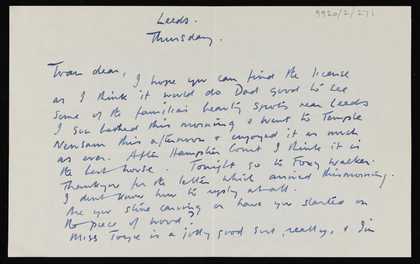 9920/2/271
Leeds.
Thursday.
dear,
I hope you can find the license
as I think it would do Dad good to see
some of the familiar beauty spots near Leeds
I sun bathed this morning & went to Temple
Newsam this afternoon & enjoyed it as much
as ever. After Hampton Court I think it is
the best house. Tonight go to Foxy
Thankyou for the letter which arrived this morning.
I dont know how to reply at all.
Are you still carving or have you started on
the piece of wood?
Miss is a jolly good sort, really, & I'm